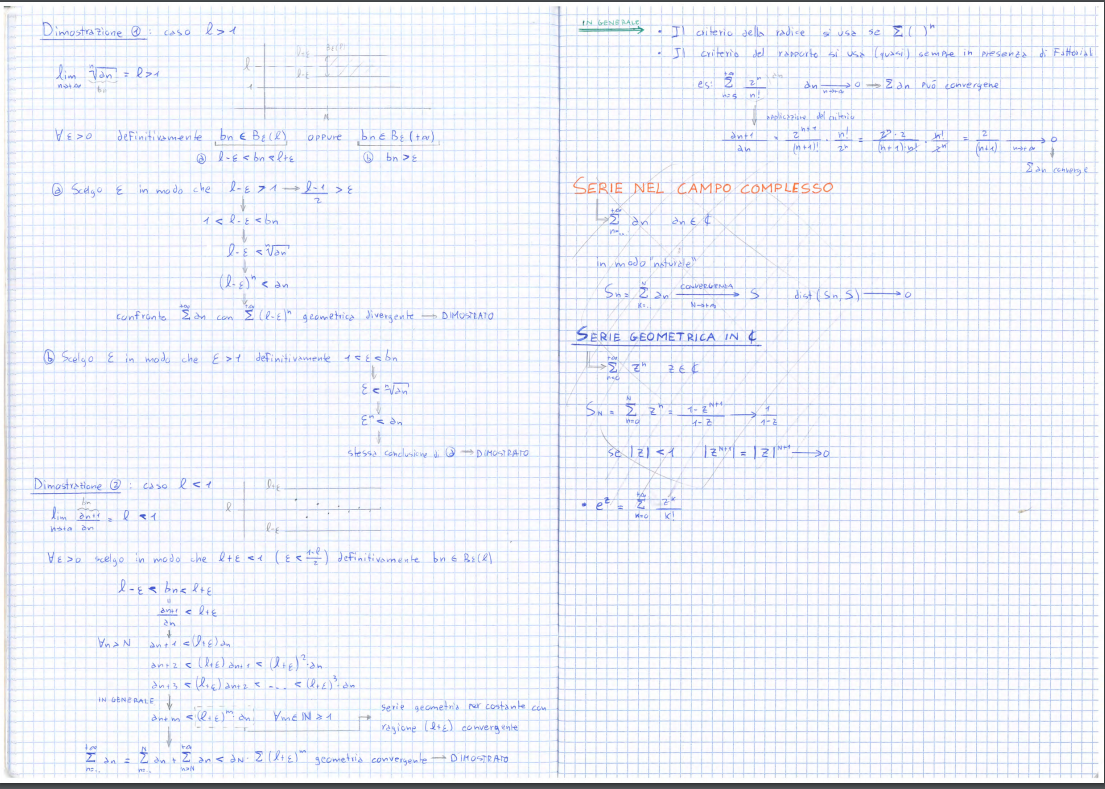 Dimostrazione ① : caso l > 1
lim n→+∞ ⁿ√an = l > 1
bn
l+ε
Bε(l)
l
l-ε
1
N
∀ε>0 definitivamente bn ∈ Bε(l) oppure bn ∈ Bε(+∞)
ⓐ l-ε < bn < l+ε ⓑ bn > ε
ⓐ Scelgo ε in modo che l-ε > 1 → l-1/2 > ε
1 < l-ε < bn
l-ε < ⁿ√an
(l-ε)ⁿ < an
confronto Σ an con Σ (l-ε)ⁿ geometrica divergente → DIMOSTRATO
ⓑ Scelgo ε in modo che ε > 1 definitivamente 1 < ε < bn
ε < ⁿ√an
εⁿ < an
stessa conclusione di ⓐ → DIMOSTRATO
Dimostrazione ② : caso l < 1
bn
lim n→+∞ an+1/an = l < 1
l+ε
l
l-ε
∀ε>0 scelgo in modo che l+ε < 1 (ε < 1-l/2) definitivamente bn ∈ Bε(l)
l-ε < bn < l+ε
an+1/an < l+ε
∀n>N an+1 < (l+ε)an
an+2 < (l+ε) an+1 < (l+ε)²·an
an+3 < (l+ε) an+2 < .... < (l+ε)³·an
IN GENERALE
an+m < (l+ε)ᵐ·an ∀m∈ℕ ≥ 1 → serie geometria per costante con
ragione (l+ε) convergente
Σ an = Σ an + Σ an < aN · Σ (l+ε)ᵐ geometria convergente → DIMOSTRATO
IN GENERALE
• Il criterio della radice si usa se Σ( )ⁿ
• Il criterio del rapporto si usa (quasi) sempre in presenza di Fattorial
es: Σ 2ⁿ/n! an n→+∞ → 0 → Σ an può convergere
applicazione del criterio
an+1/an = 2ⁿ⁺¹/(n+1)! · n!/2ⁿ = 2ⁿ·2/(n+1)·n! · n!/2ⁿ = 2/(n+1) n→+∞ → 0
Σ an converge
SERIE NEL CAMPO COMPLESSO
Σ an an ∈ ℂ
in modo "naturale"
Sn = Σ an CONVERGENZA N→+∞ → S dist(Sn, S) → 0
SERIE GEOMETRICA IN ℂ
Σ zⁿ z ∈ ℂ
SN = Σ zⁿ = 1-zᴺ⁺¹/1-z → 1/1-z
se |z| < 1 |zᴺ⁺¹| = |z|ᴺ⁺¹ → 0
• eᶻ = Σ zᵏ/k!